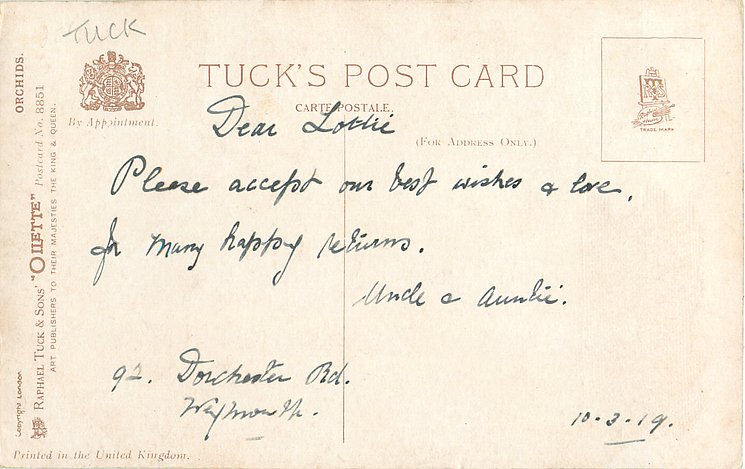 TUCK
TUCK'S POST CARD
By Appointment.
CARTE POSTALE.
(FOR ADDRESS ONLY.)
TRADE MARK
Dear Lottie
Please accept our best wishes & love,
for many happy returns.
Uncle & Auntie.
92. Dorchester Rd.
Weymouth.
10-3-19.
ORCHIDS.
RAPHAEL TUCK & SONS' "OILETTE" Postcard No. 8851
ART PUBLISHERS TO THEIR MAJESTIES THE KING & QUEEN.
Copyright London
Printed in the United Kingdom.